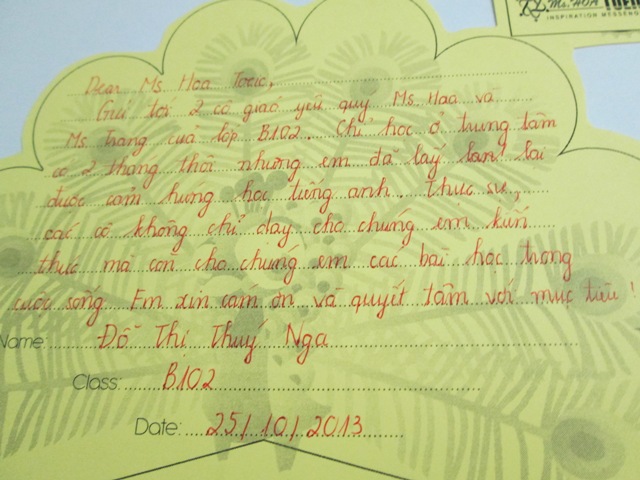 Ms. HOA TOEIC
INSPIRATION MESSENGE
Dear Ms. Hoa Toeic,
Gửi tới 2 cô giáo yêu quý Ms Hoa và
Ms. Trang của lớp B102. Chỉ học ở trung tâm
có 2 tháng thôi nhưng em đã lấy lại
được cảm hứng học tiếng anh. Thực sự,
các cô không chỉ dạy cho chúng em kiến
thức mà còn cho chúng em các bài học trong
cuộc sống. Em xin cám ơn và quyết tâm với mục tiêu!
Name: Đỗ Thị Thuý Nga
Class: B102
Date: 25/10/2013